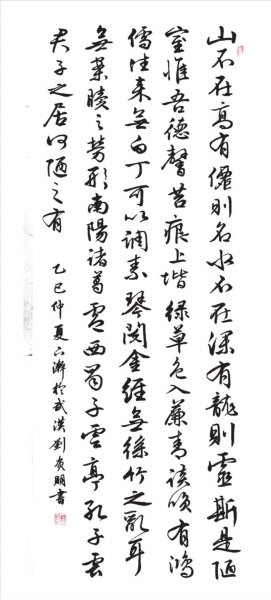 山不在高有僊則名水不在深有龍則靈斯是陋
室惟吾德馨苔痕上堦綠草色入簾青談笑有鴻
儒往來無白丁可以調素琴閱金經無絲竹之亂耳
無案牘之勞形南陽諸葛廬西蜀子雲亭孔子雲
君子之居何陋之有
乙巳仲夏於武漢劉明書